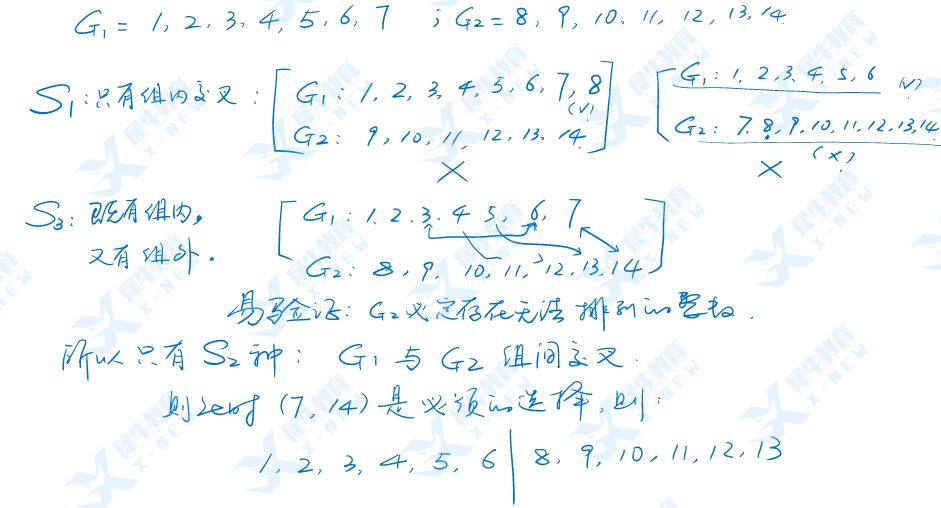 G₁ = 1, 2, 3, 4, 5, 6, 7 ; G₂ = 8, 9, 10, 11, 12, 13, 14
S₁: 只有组内交叉: [ G₁: 1, 2, 3, 4, 5, 6, 7, 8 (√) ] [ G₁: 1, 2, 3, 4, 5, 6 (√)
G₂: 9, 10, 11, 12, 13, 14 G₂: 7, 8, 9, 10, 11, 12, 13, 14
× × (×)
S₃: 既有组内, [ G₁: 1, 2, 3, 4, 5, 6, 7 ]
又有组外. G₂: 8, 9, 10, 11, 12, 13, 14
易验证: G₂必定存在无法排列的整数.
所以只有S₂种: G₁与G₂组间交叉.
则此时 (7, 14) 是必须的选择, 则:
1, 2, 3, 4, 5, 6 | 8, 9, 10, 11, 12, 13
犀牛教育
X-NEW